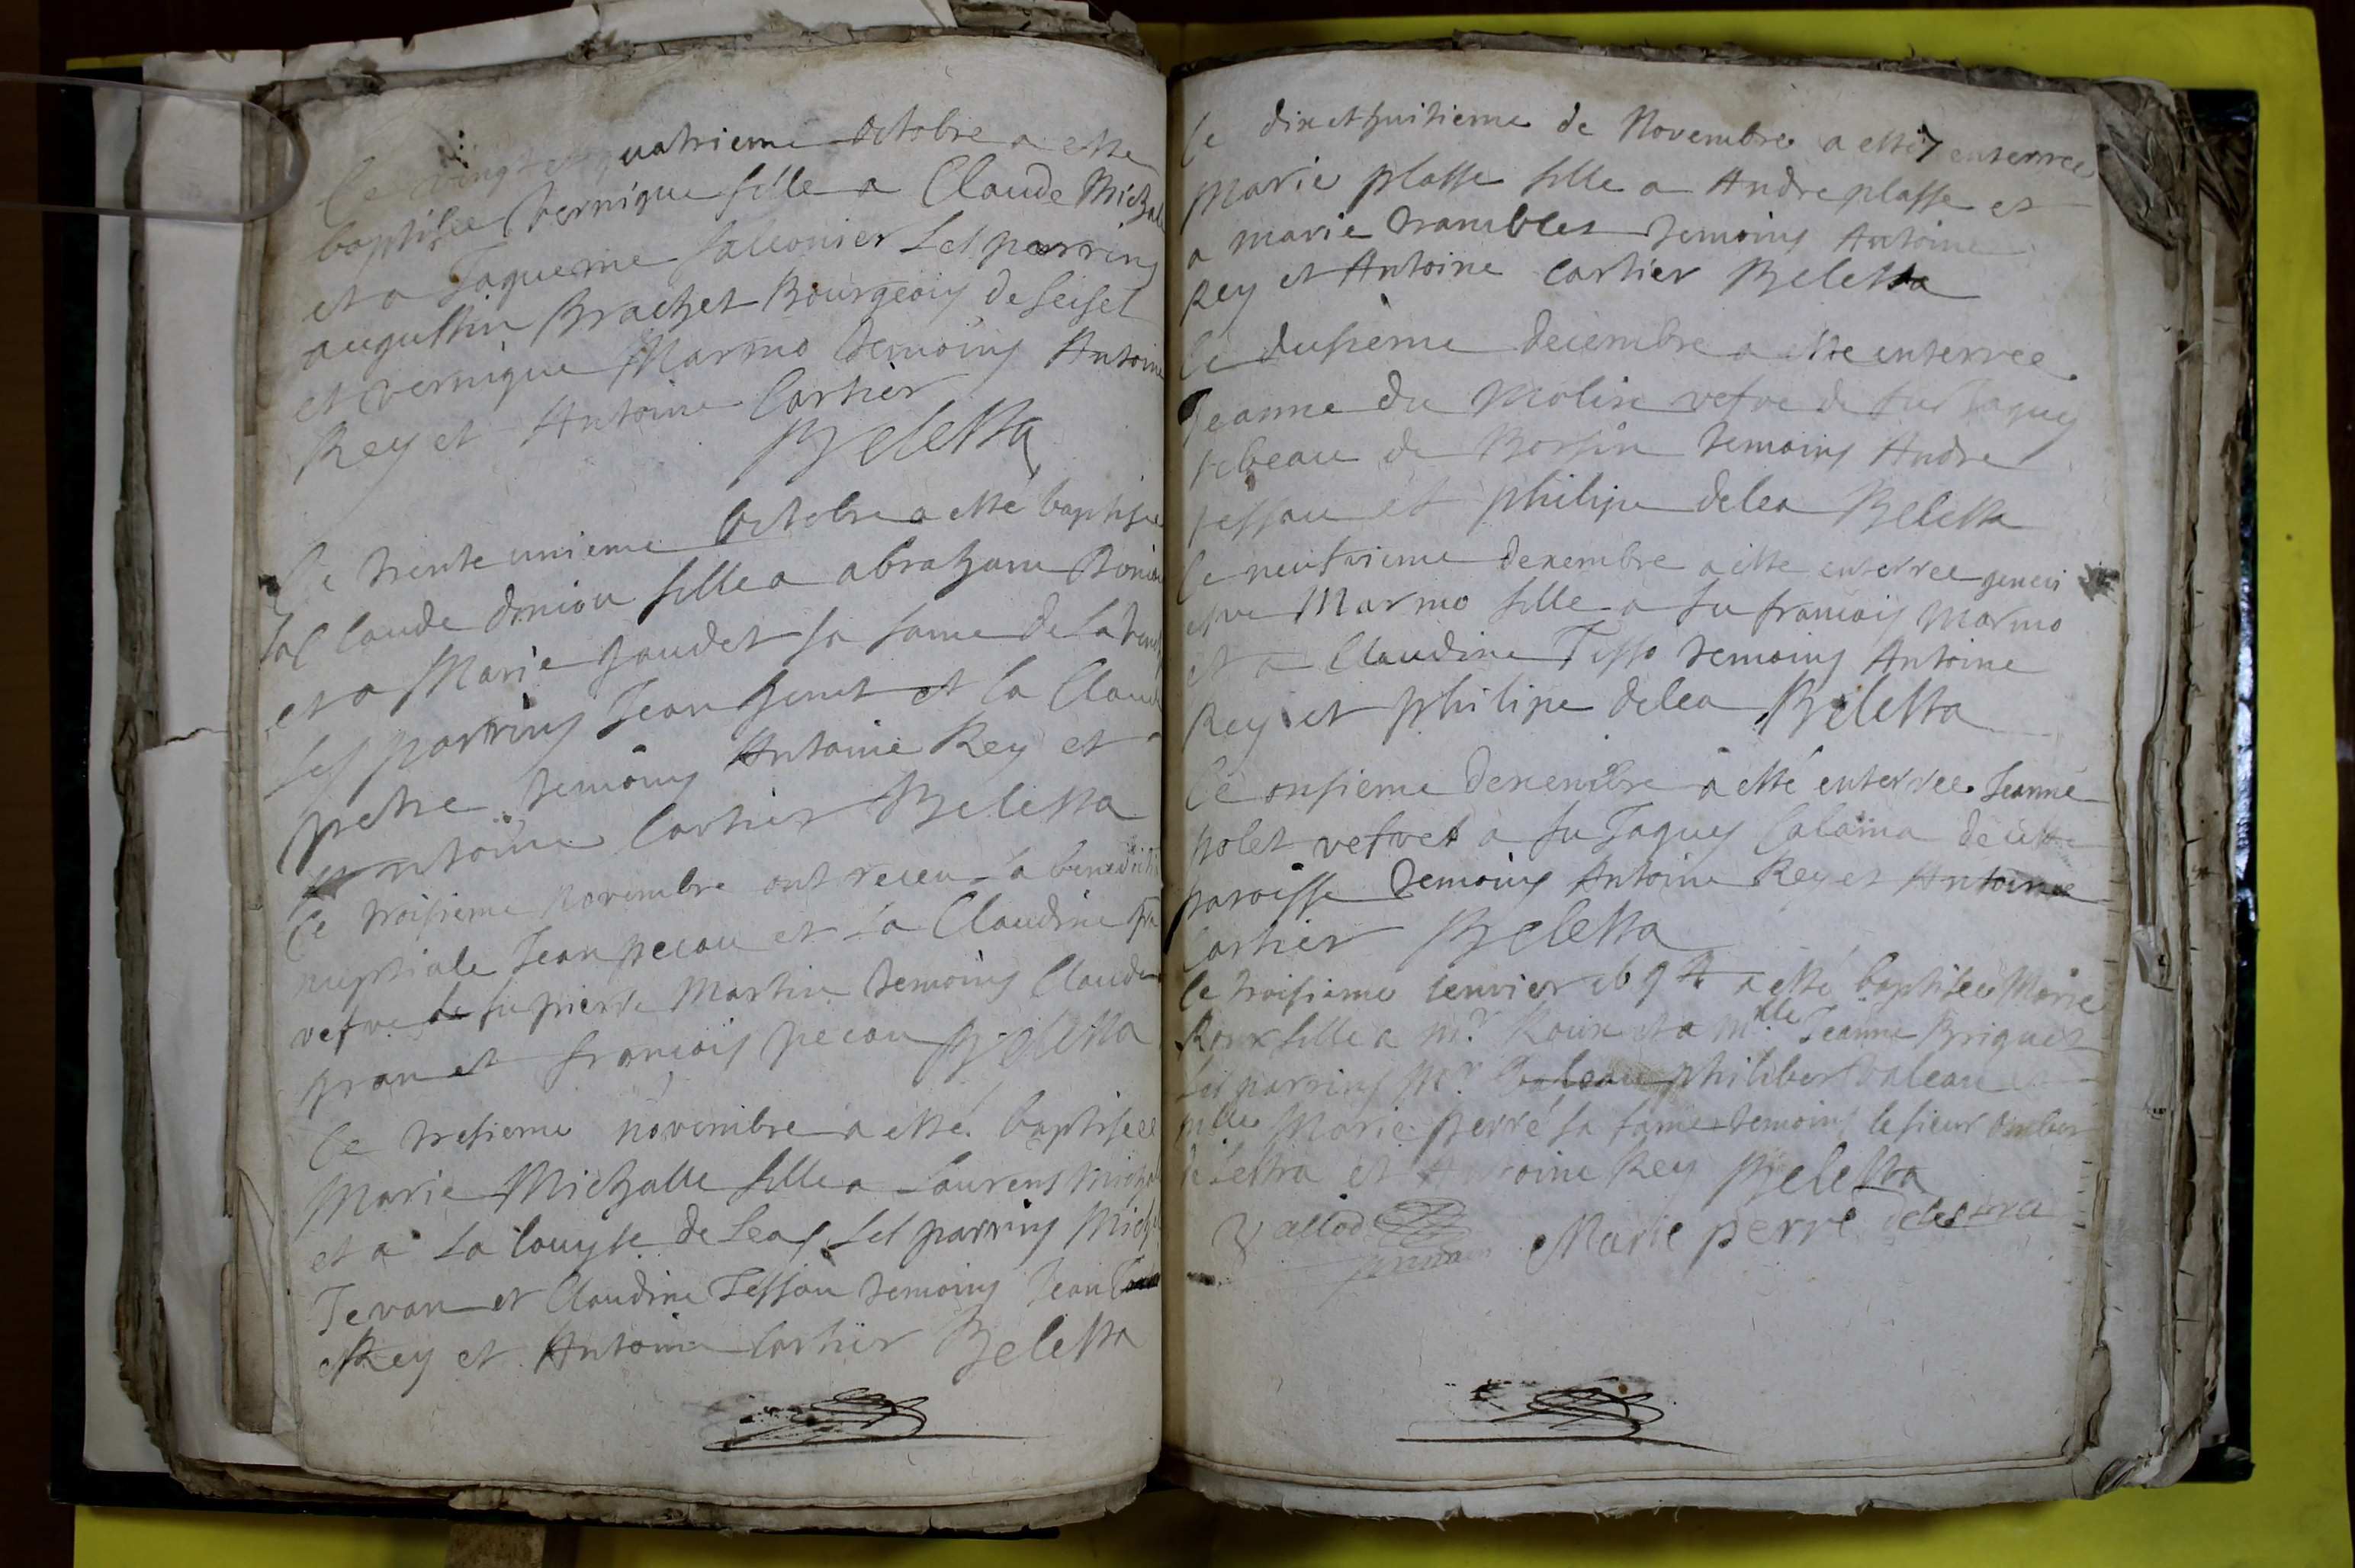 Ce vingt et quatrieme octobre a este
baptisee vernique fille a Claude Michale
et a Jaqueme falconier Les parrins
augustin Brachet Bourgeois de seisel
et vernique Marmo temoins Antoine
Rey et Antoine Cartier
Belestra
Ce trente unieme octobre a esté baptisee
la Claude doniou fille a abraham Doniou
et a Marie gaudet sa fame de la
Les parrins Jean genet et la Claude
temoins Antoine Rey et
antoine Cartier Belestra
Ce troisieme novembre ont receu la benediction
nuptiale Jean pecou et la Claudine
vefve de fu pierre Martin temoins Claude
gran et francois pecou Belestra
Ce tresieme novembre a esté baptisee
Marie Michalle fille a Laurens
et a la louyse de Leaz Les parrins
Jevan et Claudine Tessou temoins Jean
Rey et Antoine Cartier Belestra
Ce dix et huitieme de Novembre a esté enterree
Marie plasse fille a Andre plasse et
a marie tramblet temoins Antoine
Rey et Antoine Cartier Belestra
Ce dusieme decembre a este enterree
Jeanne du Molin vefve de fu Jaques
de Bossin temoins Andre
tessou et philipe delea Belestra
Ce neufvieme decembre a este enterree genevi
efve Marmo fille a fu francois Marmo
et a Claudine Tisso temoins Antoine
Rey et philipe delea Belestra
Ce onsieme decembre a esté enterree Jeanne
polet vefve a fu Jaques Calama de cette
paroisse temoins Antoine Rey et Antoine
Cartier Belestra
Ce troisieme Jenvier 1694 a esté baptisee Marie
Roux fille a Mr Roux et a Mlle Jeanne Briquet
Les parrins Mr philibert
Mlle Marie perré sa fame temoins le sieur
de Lestra et Antoine Rey Belestra
Marie perré delestra